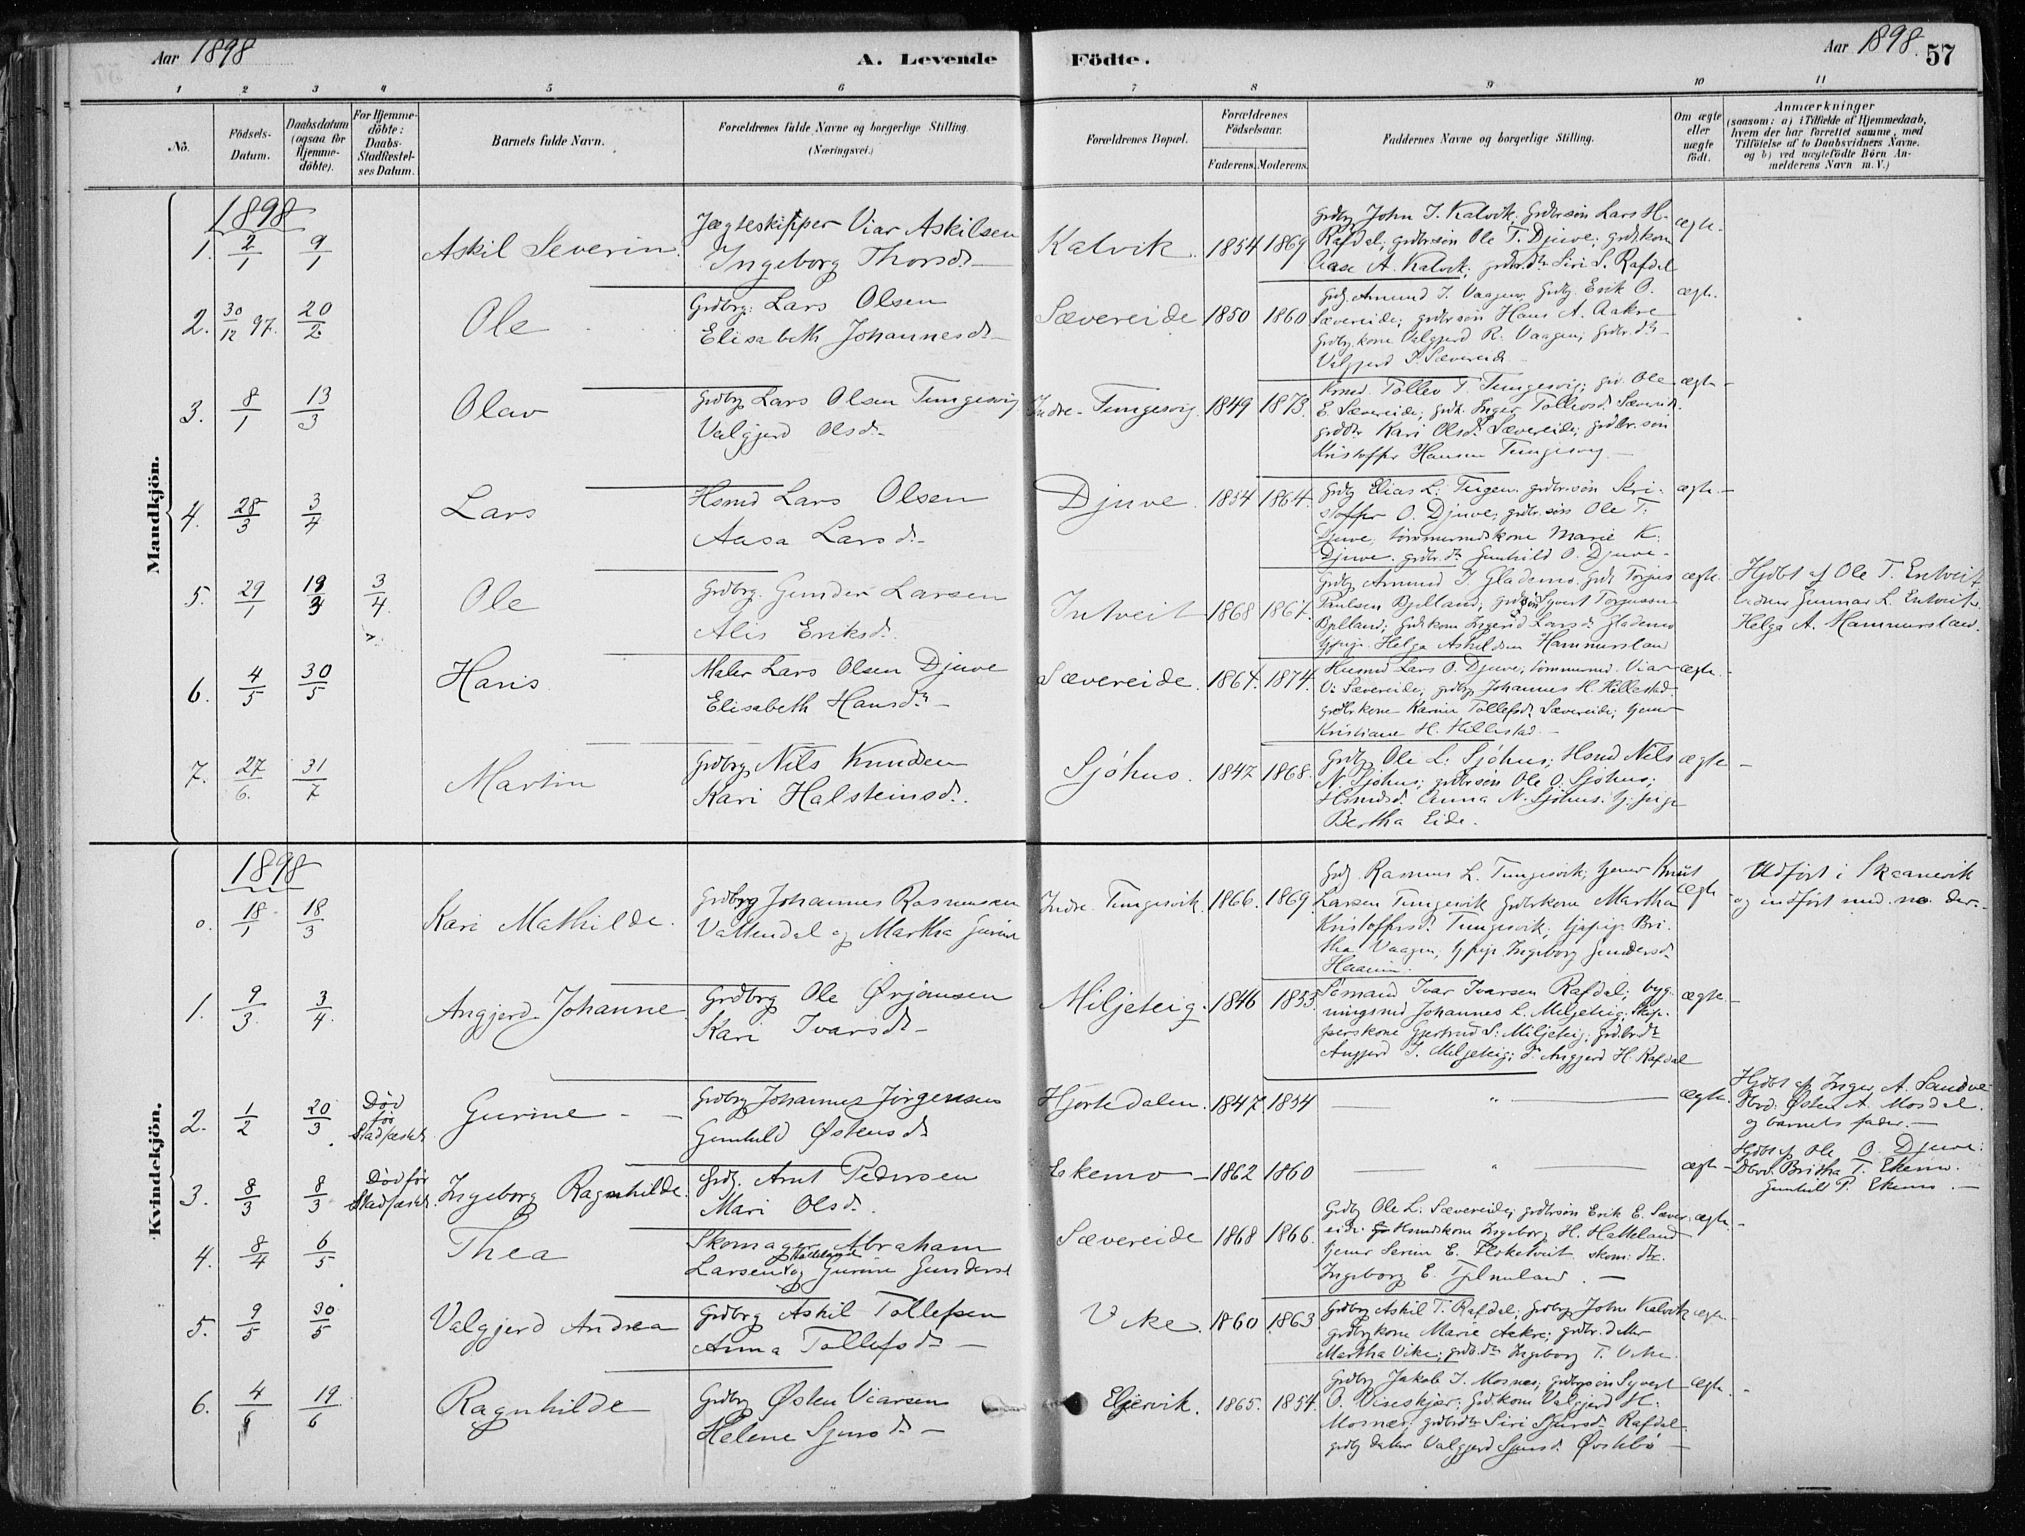 Aar 1898
A. Levende Födte.
Aar 1898.
57
1 2 3 4 5 6 7 8 9 10 11
Nö.
Födsels-Datum.
Daabsdatum (ogsaa for Hjemme-döbte).
For Hjemme-döbte: Daabs-Stadfæstel-ses Datum.
Barnets fulde Navn.
Forældrenes fulde Navne og borgerlige Stilling. (Næringsvei.)
Forældrenes Bopæl.
Forældrenes Födselsaar.
Faderens. Moderens.
Faddernes Navne og borgerlige Stilling.
Om ægte eller uægte födt.
Anmærkninger
(saasom: a) i Tilfælde af Hjemmedaab,
hvem der har forrettet samme, med
Tilföielse af to Daabsvidners Navne.
og b) ved uægtefödte Börn An-
melderens Navn m. V.)
Mandkjön.
1898
1. 2/1 9/1 Askil Severin. Jægteskipper Viar Askilsen
Ingeborg Thorsd.
Kalvik. 1854 1869
Grdbg John T. Kalvik; Grdbrsøn Lars H.
Rafdal; grdbrsøn Ole T. Djuve; grdbkone
Aase A. Kalvik; grdbr.dtr Siri S. Rafdal
ægte.
2. 30/12 97. 20/2 Ole
Grdbrg: Lars Olsen
Elisabeth Johannesd.
Sævereide 1850 1860
Grdbg Amund T. Vaagen, Grdbg Erik O.
Sævereide; grdbrsøn Hans A. Aakre
Grdbrg.kone Valgjerd R. Vaagen; grdbr.dtr
Valgjerd Sævereide
ægte.
3. 8/1 13/3 Olav
Grdbrg Lars Olsen Tungesvig
Valgjerd Olsd.
Indre-Tungesvig. 1849 1873.
Tollev T. Tungesvig; Ole
E. Sævereide; Inger Tollevsd. Sævereide.
Kari Olsd. Sævereide; grdbr.søn
Kristoffer Hansen Tungesvig
ægte
4. 28/3 3/4 Lars
Hsmd Lars Olsen
Aasa Larsd.
Djuve. 1854 1864.
Grdbg Elias L. grdbrsøn Kri-
stoffer O. Djuve; grdbr.søn Ole T.
Djuve, tømmermdskone Marie K.
Djuve. grdbr.dtr Gunhild O. Djuve
ægte.
5. 29/1 19/3 3/4 Ole
Grdbrg. Gunder Larsen
Alis Eriksd.
Intveit 1868 1867.
Grdbg Amund T. Glademo. Grdb Torjus
Paulsen Bjelland; grdbsøn Syvert Torjussen
Bjelland; Grdbkone Ingerid Larsd. Glademo
Helga Askildsen Hammersland
ægte.
Hjdbt af Ole T. Entveit
vidner Gunnar L. Entveit
Helga A. Hammersland.
6. 4/5 30/5 Hans.
Maler Lars Olsen Djuve
Elisabeth Hansdtr
Sævereide. 1867. 1874.
Husmd Lars O. Djuve, tømmermd. Viar
V. Sævereide, grdbrg Johannes H. Hillestad
grdbrkone Karine Tollefsd. Sævereide;
Kristiane H. Hillestad.
ægte.
7. 27/6. 31/7 Martin
Grdbrg Nils Knudsen
Kari Halsteinsd.
Sjöhus. 1847 1868.
Grdbg Ole L. Sjöhus; Hsmd Nils
N. Sjöhus; grdbrsøn Ole O. Sjöhus;
Hsmdsd. Anna N. Sjöhus.
Bertha Eide.
ægte
Kvindekjön.
1898
0. 18/1 18/3 Kari Mathilde.
Grdbrg Johannes Rasmussen
Vattendal og Martha Gurine
Indre Tungesvik. 1866. 1869.
Grdb. Rasmus L. Tungesvik; Knut
Larsen Tungesvik Grdbkone Martha
Kristoffersd. Tungesvik, Bri-
tha Vaagen, Ingeborg Gundersd.
Haavin.
ægte
Udført i Skaanevik
og indført med no der.
1. 9/3. 3/4. Angjerd Johanne
Grdbrg Ole Ørjansen
Kari Ivarsd.
Miljeteig. 1846 1853.
Sømand Ivar Ivarsen Rafdal; byg-
ningsmd Johannes L. Miljeteig, Skip-
perskone Gjertrud S. Miljeteig, Grdbrdtr
Angjerd J. Miljeteig; Angjerd H. Rafdal
ægte
2. 1/2 20/3 Død før Stadfæstet. Gurine
Grdbrg Johannes Jörgensen
Gunhild Østensd.
Hjortedalen. 1847. 1854
ægte.
Hjdbt af Inger A. Sandve
Østen A. Mosdal.
og barnets fader.
3. 8/3 8/3 Død før Stadfæstet. Ingeborg Ragnhilde.
Grdb. Arnt Pedersen
Mari Olsd.
Ekemo 1862 1860
ægte
Hjdbt af Ole O. Djuve.
Britha T. Ekemo.
Gunhild P. Ekemo.
4. 8/4 6/5 Thea
Skomager Abraham
Larsen og Gurine Gundersd
Sævereide 1868 1866.
Grdbg Ole L. Sævereide; grdbrsøn Erik E. Sæver-
eide. Hsmdskone Ingeborg H. Hatteland
Serine E. skom. dtr.
Ingeborg E. Tjelmeland.
ægte.
5. 9/5 30/5 Valgjerd Andrea
Grdbrg Askil Tollefsen
Anna Tollefsd.
Vike. 1860 1863.
Grdbrg Askil T. Rafdal; Grdbrg John Kalvik
grdbrgkone Marie Aakre; grdbr. datter
Martha Vike; grdb.dtr Ingeborg T. Vike.
ægte
6. 4/6 19/6 Ragnhilde
Grdbrg Østen Viarsen
Helene Sjursd.
Eljervik. 1865. 1854.
Grdbg Jakob J. Mosnes; grdbrgsøn Syvert
O. Viseskjær; Grdkone Valgjerd H.
Mosnes; grdbrdtr Siri Sjursd. Rafdal
grdbg datter Valgjerd Sjursd. Øvstebø
ægte.